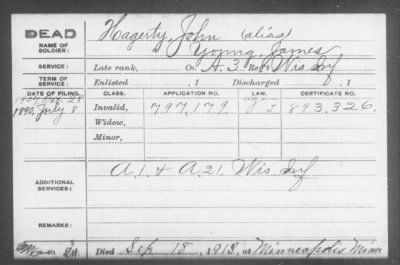 DEAD Hagerty, John (alias)
NAME OF SOLDIER: Young, James
SERVICE: Late rank, Co. A. 3 Reg't Wis. Inf
TERM OF SERVICE: Enlisted , 1 Discharged , 1
DATE OF FILING. CLASS. APPLICATION NO. LAW. CERTIFICATE NO.
1890, July 8 Invalid, 797.179 J 893.326.
Widow,
Minor,
ADDITIONAL SERVICES: A.1. & A.21. Wis. Inf
REMARKS:
Died Sep 18, 1913, at Minneapolis Minn